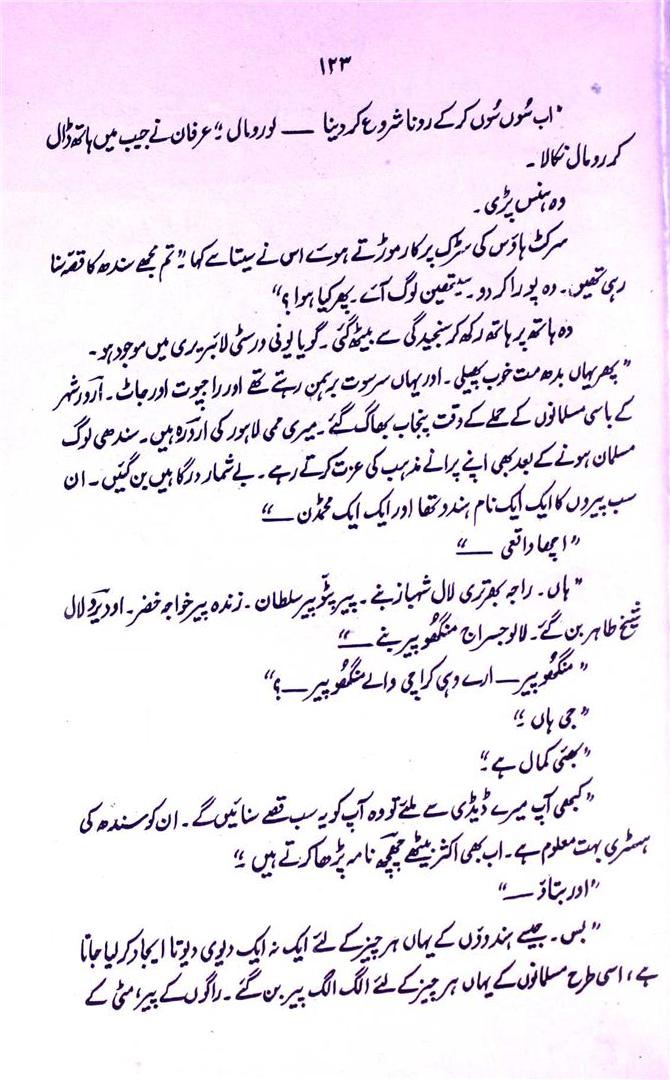 ۱۲۳
"اب سُوں سُوں کر کے رونا شروع کر دینا — لو رومال ۔" عرفان نے جیب میں ہاتھ ڈال
کر رومال نکالا ۔
وہ ہنس پڑی ۔
سرکٹ ہاؤس کی سڑک پر کار موڑتے ہوئے اس نے سیتا سے کہا ۔" تم مجھے سندھ کا قصّہ سنا
رہی تھیں ۔ وہ پورا کر دو ۔ سیتھین لوگ آئے ۔ پھر کیا ہوا ؟"
وہ ہاتھ پر ہاتھ رکھ کر سنجیدگی سے بیٹھ گئی ۔ گویا یونی ورسٹی لائبریری میں موجود ہو ۔
"پھر یہاں بدھ مت خوب پھیلی ۔ اور یہاں سرسوت برہمن رہتے تھے اور راجپوت اور جاٹ ۔ آروڑ شہر
کے باسی مسلمانوں کے حملے کے وقت پنجاب بھاگ گئے ۔ میری ممی لاہور کی اروڑہ ہیں ۔ سندھی لوگ
مسلمان ہونے کے بعد بھی اپنے پرانے مذہب کی عزت کرتے رہے ۔ بے شمار درگاہیں بن گئیں ۔ ان
سب پیروں کا ایک ایک نام ہندو تھا اور ایک ایک محمڈن —"
"اچھا واقعی —"
"ہاں ۔ راجہ بھرتری لال شہباز بنے ۔ پیر پٹّو پیر سلطان ۔ زندہ پیر خواجہ خضر ۔ اودیرو لال
شیخ طاہر بن گئے ۔ لالو جسراج منگھو پیر بنے —"
"منگھو پیر — ارے وہی کراچی والے منگھو پیر — ؟"
"جی ہاں ۔"
"بھئی کمال ہے ۔"
"کبھی آپ میرے ڈیڈی سے ملئے تو وہ آپ کو یہ سب قصے سنائیں گے ۔ ان کو سندھ کی
ہسٹری بہت معلوم ہے ۔ اب بھی اکثر بیٹھے چچھ نامہ پڑھا کرتے ہیں ۔"
"اور بتاؤ —"
"بس ۔ جیسے ہندوؤں کے یہاں ہر چیز کے لئے ایک نہ ایک دیوی دیوتا ایجاد کر لیا جاتا
ہے، اسی طرح مسلمانوں کے یہاں ہر چیز کے لئے الگ الگ پیر بن گئے ۔ راگوں کے پیر، مٹی کے